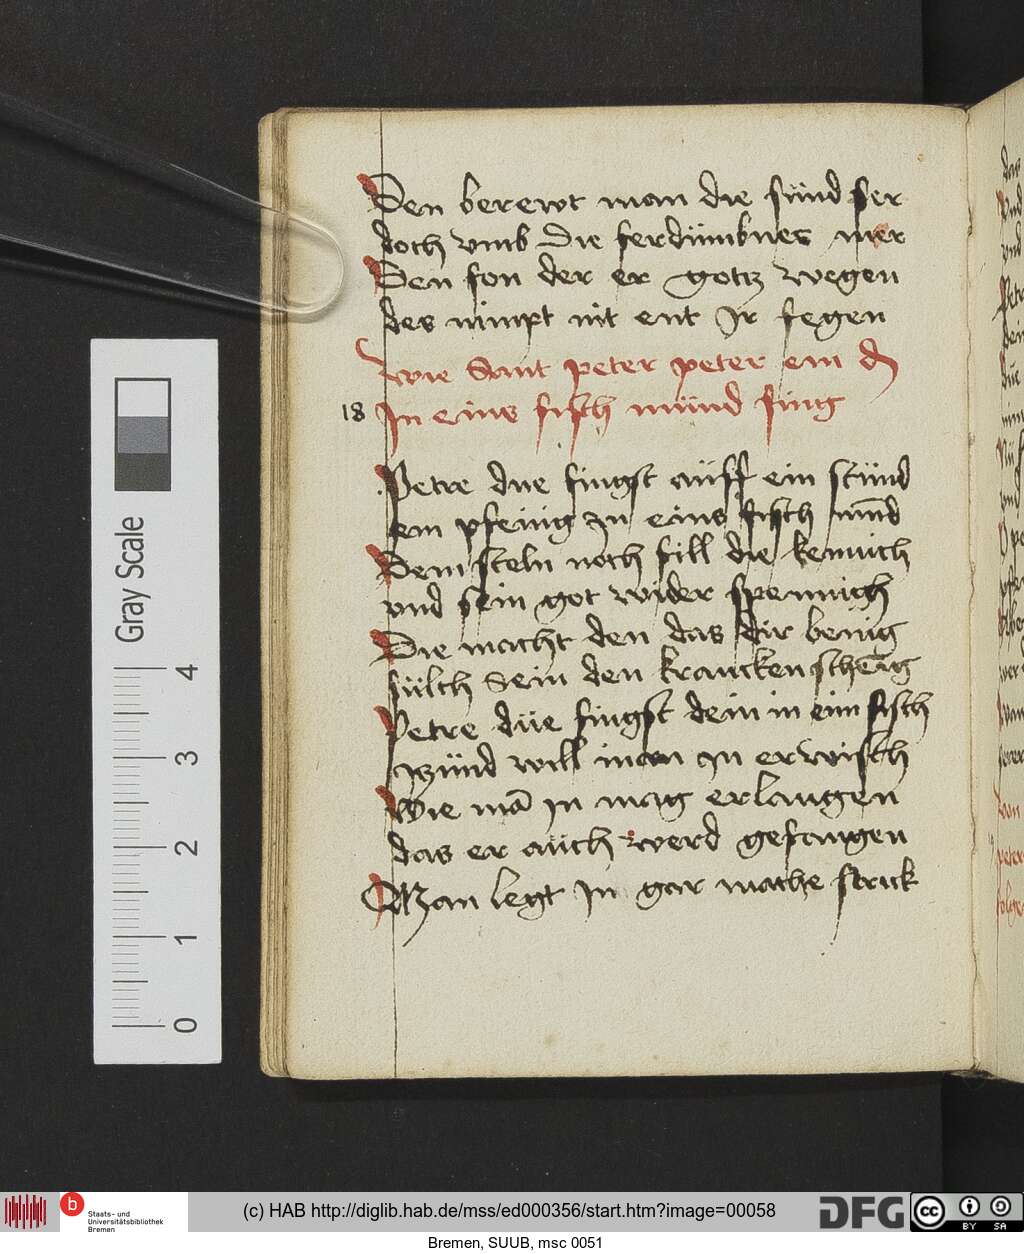 Den berewt man die sünd ser
doch vmb die ferdümbnes mer
Den son der er gotz wegen
des nimpt nit ent Ir segen
Wie Sant peter peter ein d
18 In eins fisch münd fing
Petre due fingst auff ein stünd
ein pfenig zu eins fisch mund
Dem steln noch fill die
vnd sein got wider spennich
Die macht den das dir benig
sülch sein den krancken
Petre düe fingst dein in eim fisch
itzünd will man In erwisch
Wie mā in mag erlangen
das er auch werd gefangen
Man legt In gar mache strick
Gray Scale
4
3
2
1
0
b
Staats- und
Universitätsbibliothek
Bremen
(c) HAB http://diglib.hab.de/mss/ed000356/start.htm?image=00058
DFG
cc BY SA
Bremen, SUUB, msc 0051